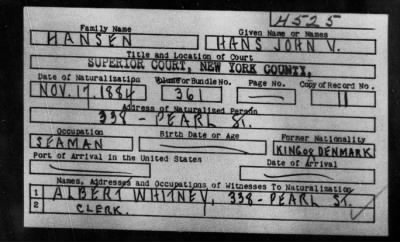 H525
Family Name Given Name or Names
HANSEN HANS JOHN V.
Title and Location of Court
SUPERIOR COURT, NEW YORK COUNTY,
Date of Naturalization Volume or Bundle No. Page No. Copy of Record No.
NOV. 17, 1884 361 11
Address of Naturalized Person
338 - PEARL ST.
Occupation Birth Date or Age Former Nationality
SEAMAN KING OF DENMARK
Port of Arrival in the United States Date of Arrival
Names, Addresses and Occupations of Witnesses To Naturalization
1 ALBERT WHITNEY, 338 - PEARL ST.
2 CLERK.